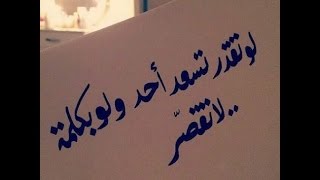 لو تقدر تسعد أحد ولو بكلمة
..لا تقصّر